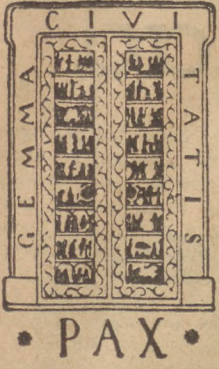 GEMMA
CIVI
TATIS
• PAX •